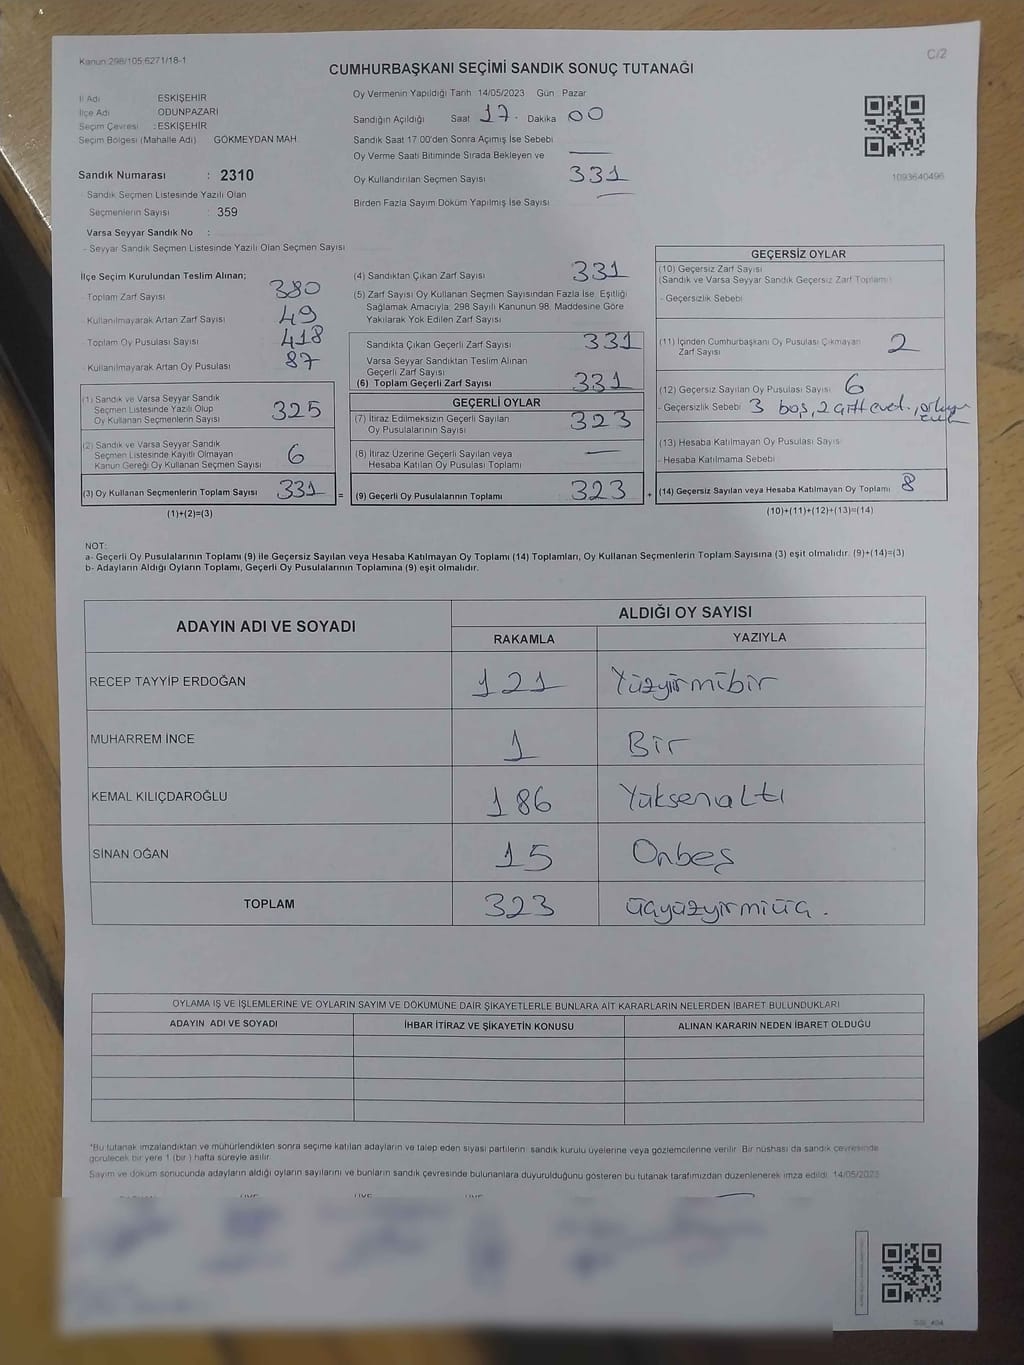 Kanun:298/105;6271/18-1
C/2
CUMHURBAŞKANI SEÇİMİ SANDIK SONUÇ TUTANAĞI
İl Adı ESKİŞEHİR
İlçe Adı ODUNPAZARI
Seçim Çevresi : ESKİŞEHİR
Seçim Bölgesi (Mahalle Adı) GÖKMEYDAN MAH.
Sandık Numarası : 2310
- Sandık Seçmen Listesinde Yazılı Olan
Seçmenlerin Sayısı : 359
Varsa Seyyar Sandık No :
- Seyyar Sandık Seçmen Listesinde Yazılı Olan Seçmen Sayısı
Oy Vermenin Yapıldığı Tarih 14/05/2023 Gün Pazar
Sandığın Açıldığı Saat 17. Dakika 00
Sandık Saat 17 00'den Sonra Açımış İse Sebebi
Oy Verme Saati Bitiminde Sırada Bekleyen ve
Oy Kullandırılan Seçmen Sayısı 331
Birden Fazla Sayım Döküm Yapılmış İse Sayısı
1093640496
İlçe Seçim Kurulundan Teslim Alınan;
- Toplam Zarf Sayısı 380
- Kullanılmayarak Artan Zarf Sayısı 49
- Toplam Oy Pusulası Sayısı 418
- Kullanılmayarak Artan Oy Pusulası 87
(1) Sandık ve Varsa Seyyar Sandık
Seçmen Listesinde Yazılı Olup
Oy Kullanan Seçmenlerin Sayısı 325
(2) Sandık ve Varsa Seyyar Sandık
Seçmen Listesinde Kayıtlı Olmayan
Kanun Gereği Oy Kullanan Seçmen Sayısı 6
(3) Oy Kullanan Seçmenlerin Toplam Sayısı 331 =
(1)+(2)=(3)
(4) Sandıktan Çıkan Zarf Sayısı 331
(5) Zarf Sayısı Oy Kullanan Seçmen Sayısından Fazla İse, Eşitliği
Sağlamak Amacıyla, 298 Sayılı Kanunun 98. Maddesine Göre
Yakılarak Yok Edilen Zarf Sayısı
Sandıkta Çıkan Geçerli Zarf Sayısı 331
Varsa Seyyar Sandıktan Teslim Alınan
Geçerli Zarf Sayısı
(6) Toplam Geçerli Zarf Sayısı 331
GEÇERLİ OYLAR
(7) İtiraz Edilmeksizin Geçerli Sayılan
Oy Pusulalarının Sayısı 323
(8) İtiraz Üzerine Geçerli Sayılan veya
Hesaba Katılan Oy Pusulası Toplamı —
(9) Geçerli Oy Pusulalarının Toplamı 323 +
GEÇERSİZ OYLAR
(10) Geçersiz Zarf Sayısı
(Sandık ve Varsa Seyyar Sandık Geçersiz Zarf Toplamı)
- Geçersizlik Sebebi
(11) İçinden Cumhurbaşkanı Oy Pusulası Çıkmayan
Zarf Sayısı 2
(12) Geçersiz Sayılan Oy Pusulası Sayısı 6
- Geçersizlik Sebebi 3 boş, 2 çift evet.,
(13) Hesaba Katılmayan Oy Pusulası Sayısı
- Hesaba Katılmama Sebebi
(14) Geçersiz Sayılan veya Hesaba Katılmayan Oy Toplamı 8
(10)+(11)+(12)+(13)=(14)
NOT:
a- Geçerli Oy Pusulalarının Toplamı (9) ile Geçersiz Sayılan veya Hesaba Katılmayan Oy Toplamı (14) Toplamları, Oy Kullanan Seçmenlerin Toplam Sayısına (3) eşit olmalıdır. (9)+(14)=(3)
b- Adayların Aldığı Oyların Toplamı, Geçerli Oy Pusulalarının Toplamına (9) eşit olmalıdır.
ADAYIN ADI VE SOYADI ALDIĞI OY SAYISI
RAKAMLA YAZIYLA
RECEP TAYYİP ERDOĞAN 121 Yüzyirmibir
MUHARREM İNCE 1 Bir
KEMAL KILIÇDAROĞLU 186 Yüksenaltı
SİNAN OĞAN 15 Onbeş
TOPLAM 323 üçyüzyirmiüç.
OYLAMA İŞ VE İŞLEMLERİNE VE OYLARIN SAYIM VE DÖKÜMÜNE DAİR ŞİKAYETLERLE BUNLARA AİT KARARLARIN NELERDEN İBARET BULUNDUKLARI
ADAYIN ADI VE SOYADI İHBAR İTİRAZ VE ŞİKAYETİN KONUSU ALINAN KARARIN NEDEN İBARET OLDUĞU
*Bu tutanak imzalandıktan ve mühürlendikten sonra seçime katılan adayların ve talep eden siyasi partilerin sandık kurulu üyelerine veya gözlemcilerine verilir. Bir nüshası da sandık çevresinde
görülecek bir yere 1 (bir ) hafta süreyle asılır.
Sayım ve döküm sonucunda adayların aldığı oyların sayılarını ve bunların sandık çevresinde bulunanlara duyurulduğunu gösteren bu tutanak tarafımızdan düzenlenerek imza edildi. 14/05/2023